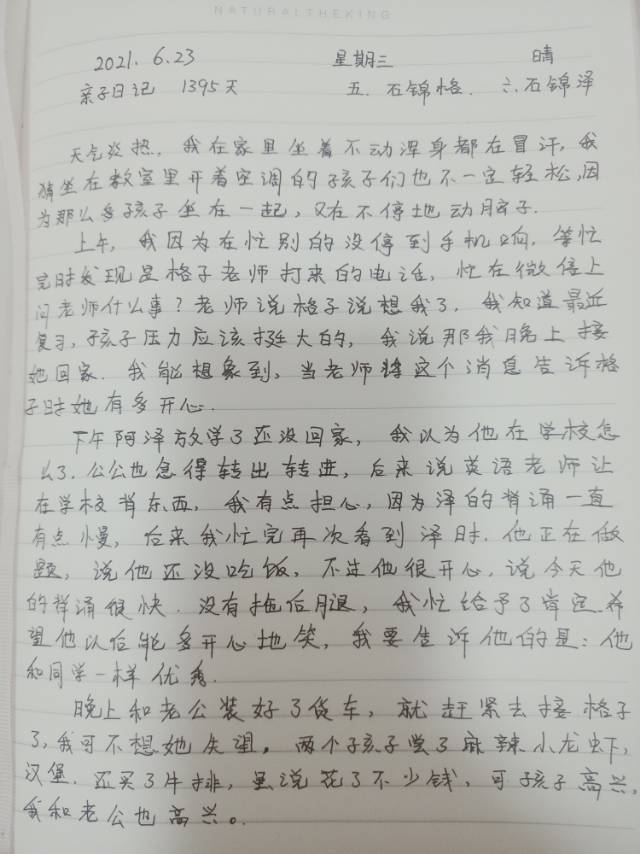 NATURALTHEKING
2021. 6.23 星期三 晴
亲子日记 1395天 五. 石锦格. 六. 石锦泽
天气炎热, 我在家里坐着不动浑身都在冒汗, 我
猜坐在教室里开着空调的孩子们也不一定轻松, 因
为那么多孩子坐在一起, 又在不停地动脖子.
上午, 我因为在忙别的没停到手机响, 等忙
完时发现是格子老师打来的电话, 忙在微停上
问老师什么事? 老师说格子说想我了. 我知道最近
复习, 孩子压力应该挺大的, 我说那我晚上接
她回家. 我能想象到, 当老师将这个消息告诉格
子时她有多开心.
下午阿泽放学了还没回家, 我以为他在学校怎
么了. 公公也急得转出转进, 后来说英语老师让
在学校背东西, 我有点担心, 因为泽的背诵一直
有点慢, 后来我忙完再次看到泽时. 他正在做
题, 说他还没吃饭, 不过他很开心, 说今天他
的背诵很快. 没有拖后腿, 我忙给予了肯定. 希
望他以后能多开心地笑, 我要告诉他的是: 他
和同学一样优秀.
晚上和老公装好了货车, 就赶紧去接格子
了, 我可不想她失望. 两个孩子尝了麻辣小龙虾,
汉堡. 还买了牛排, 虽说花了不少钱, 可孩子高兴,
我和老公也高兴。